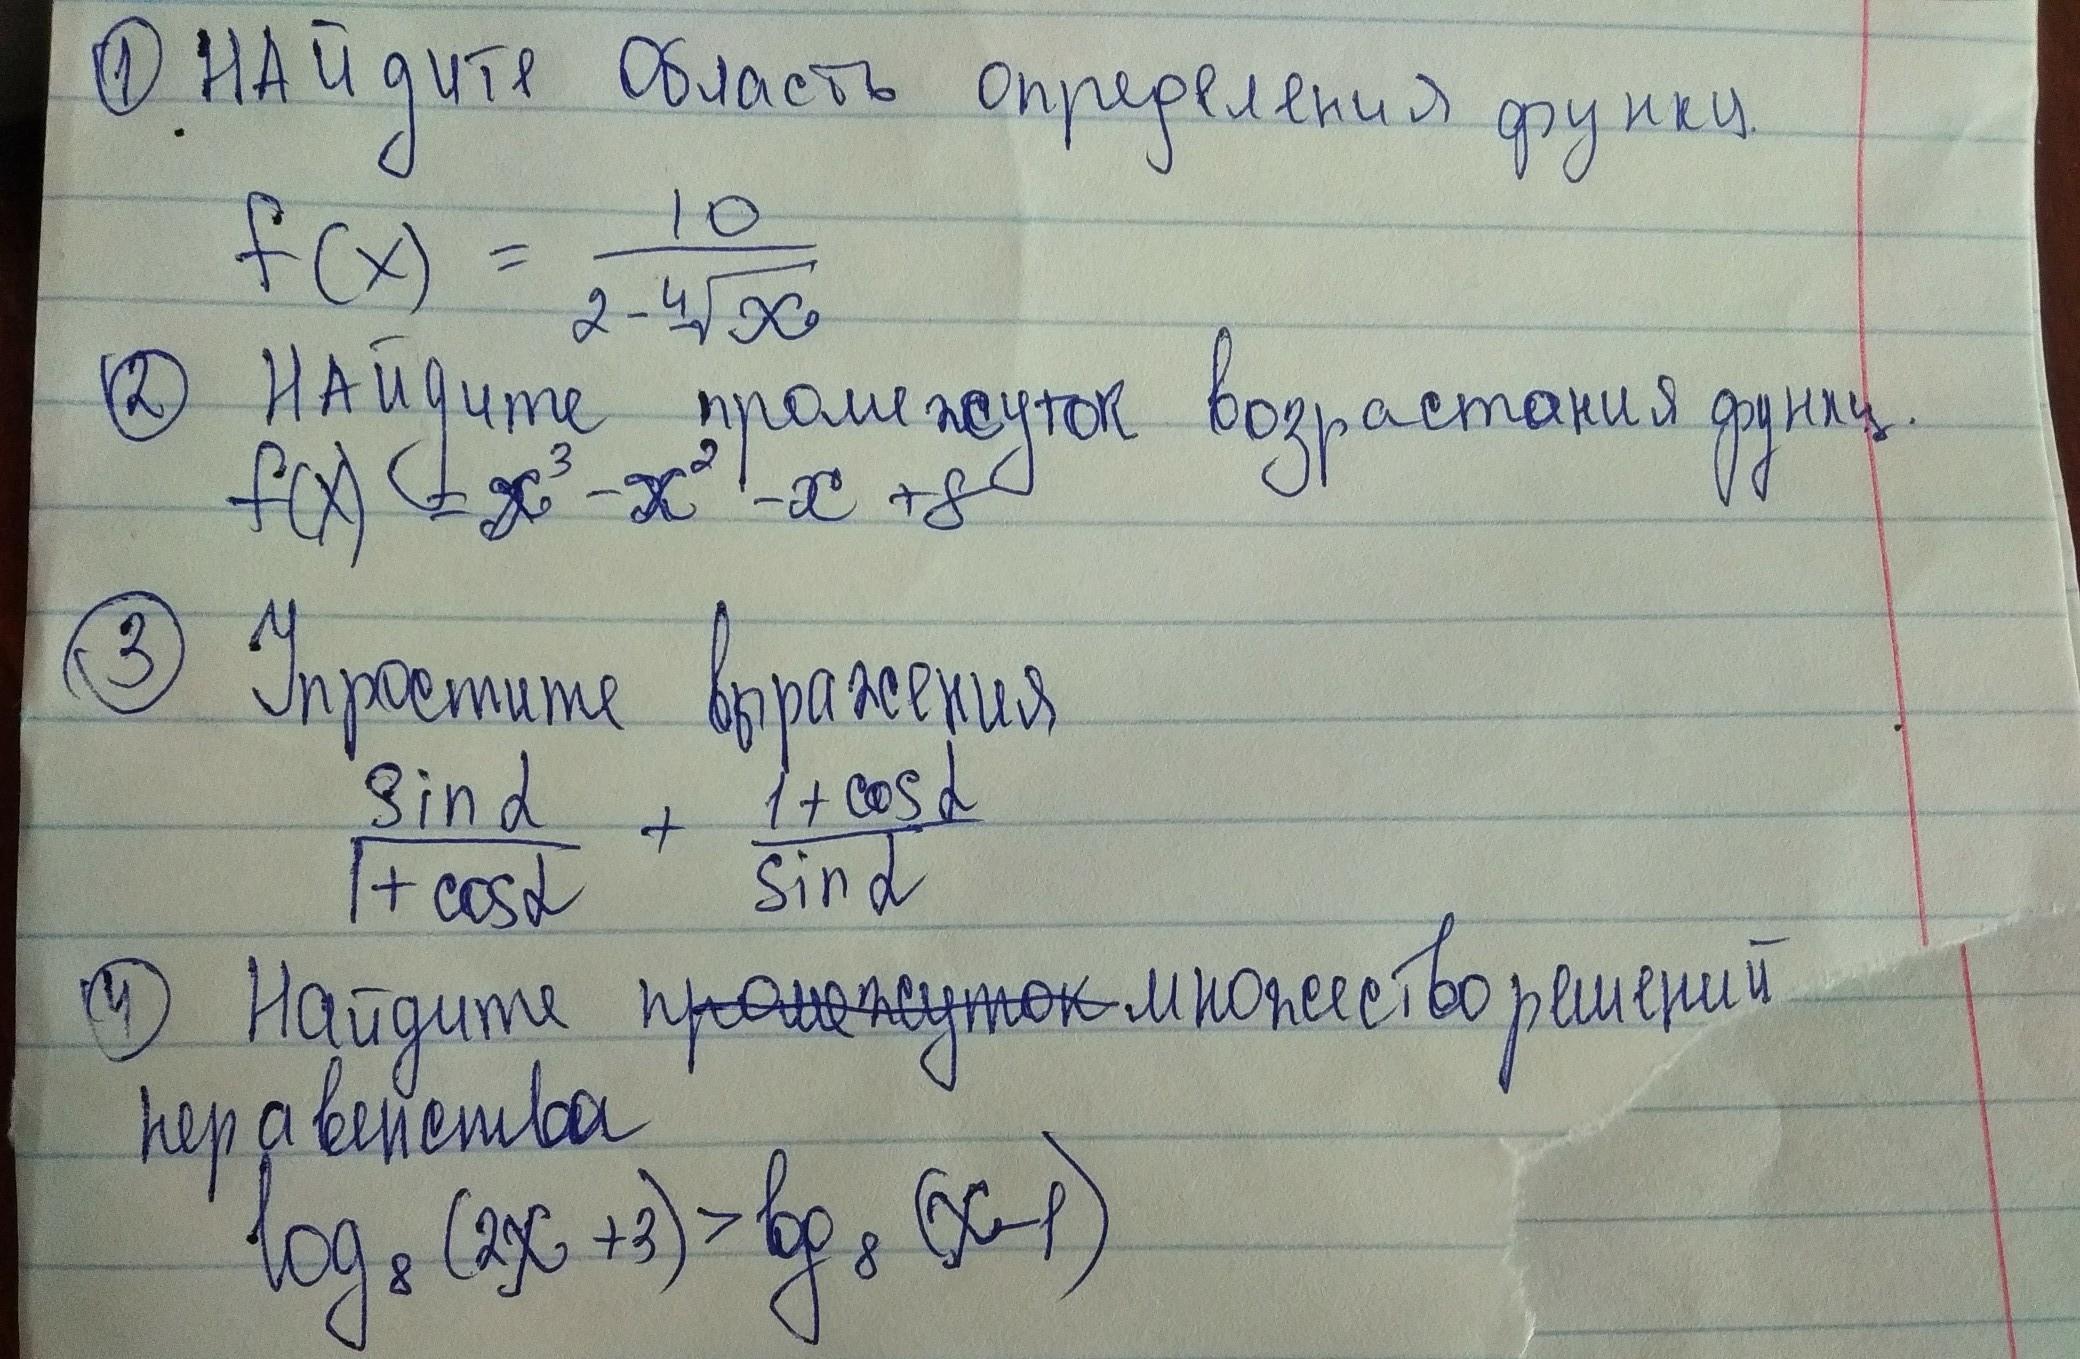 ① НАЙдите Область определения функц.
f(x) = 10 / (2 - ⁴√x)
② НАЙдите промежуток возрастания функц.
f(x) = x³ - x² - x + 8
③ Упростите выражения
sin α / (1 + cos α) + (1 + cos α) / sin α
④ Найдите ~~промежуток~~ множество решений
неравенства
log₈ (2x + 3) > log₈ (x - 1)